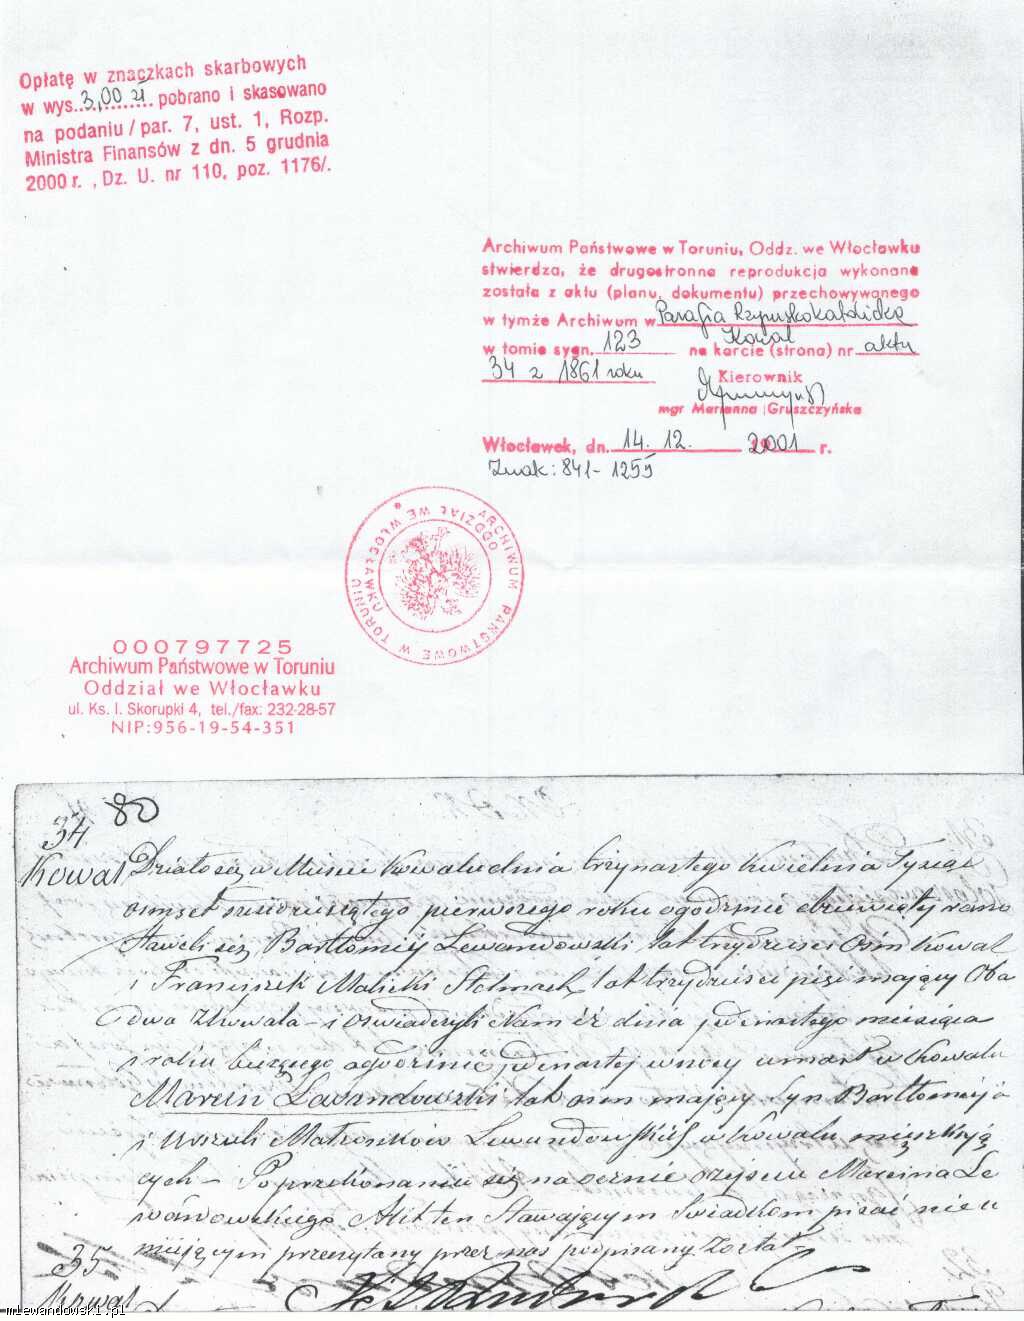 Opłatę w znaczkach skarbowych
w wys. 3,00 zł pobrano i skasowano
na podaniu / par. 7, ust. 1, Rozp.
Ministra Finansów z dn. 5 grudnia
2000 r. , Dz. U. nr 110, poz. 1176/.
Archiwum Państwowe w Toruniu, Oddz. we Włocławku
stwierdza, że drugostronna reprodukcja wykonana
została z aktu (planu, dokumentu) przechowywanego
w tymże Archiwum w Parafia Rzymskokatolicka
Kowal
w tomie sygn. 123 na karcie (strona) nr aktu
34 z 1861 roku
Kierownik
mgr Marianna Gruszczyńska
Włocławek, dn. 14. 12. 2001 r.
Znak: 841-1255
ARCHIWUM PAŃSTWOWE W TORUNIU
ODDZIAŁ WE WŁOCŁAWKU
000797725
Archiwum Państwowe w Toruniu
Oddział we Włocławku
ul. Ks. I. Skorupki 4, tel./fax: 232-28-57
NIP:956-19-54-351
80
34
Kowal
Działo się w Mieście Kowalu dnia trzynastego Kwietnia Tysiąc
ośmset sześćdziesiątego pierwszego roku o godzinie dziewiąty rano
Stawili się Bartłomiej Lewandowski lat trzydzieści ośm Kowal
i Franciszek Malicki Stelmach, lat trzydzieści pięć mający Oba
dwa z Kowala – i oświadczyli Nam iż dnia jedenastego miesiąca
i roku bieżącego o godzinie jedenastej w nocy umarł w Kowalu
Marcin Lewandowski lat osm mający Syn Bartłomieja
i Urszuli Małżonków Lewandowskich w Kowalu mieszkają
cych – Po przekonaniu się naocznie o zejściu Marcina Le
wandowskiego Akt ten Stawającym Świadkom pisać nie u
miejącym przeczytany przez nas podpisany Został
35
Kowal
mlewandowski.pl